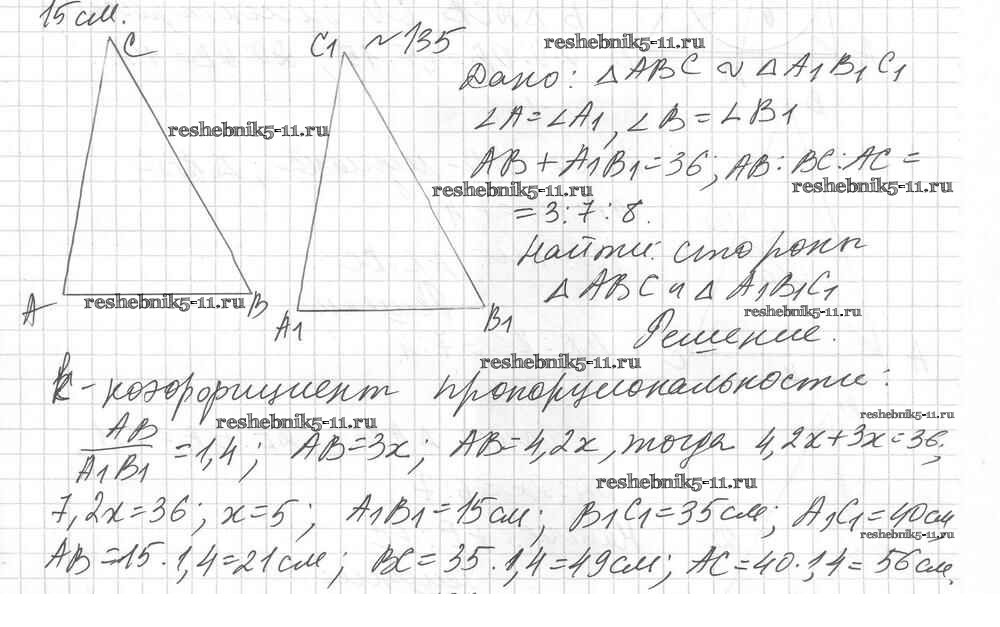 15 см.
C
C1 ~135
reshebnik5-11.ru
Дано: △ ABC ∾ △ A1 B1 C1
reshebnik5-11.ru
∠A=∠A1, ∠B=∠B1
AB+A1B1=36; AB:BC:AC=
reshebnik5-11.ru
reshebnik5-11.ru
=3:7:8.
Найти: стороны
△ ABC и △ A1B1C1
A
reshebnik5-11.ru
B
A1
B1
reshebnik5-11.ru
Решение.
reshebnik5-11.ru
k - коэффициент пропорциональности:
reshebnik5-11.ru
reshebnik5-11.ru
AB/A1B1 =1,4; AB=3x; AB=4,2x, тогда 4,2x+3x=36;
reshebnik5-11.ru
7,2x=36; x=5; A1B1=15см; B1C1=35см; A1C1=40см
reshebnik5-11.ru
AB=15·1,4=21см; BC=35·1,4=49см; AC=40·1,4=56см,